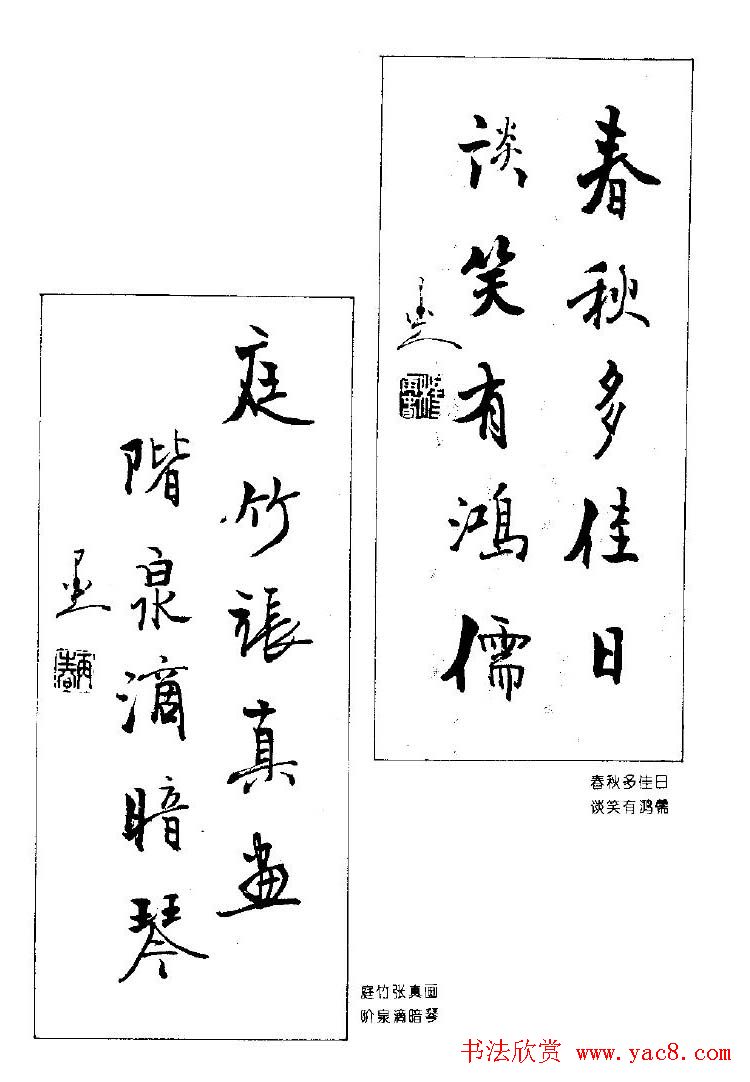 春秋多佳日
谈笑有鴻儒
春秋多佳日
谈笑有鸿儒
庭竹張真畫
階泉滴暗琴
庭竹张真画
阶泉滴暗琴
书法欣赏 www.yac8.com